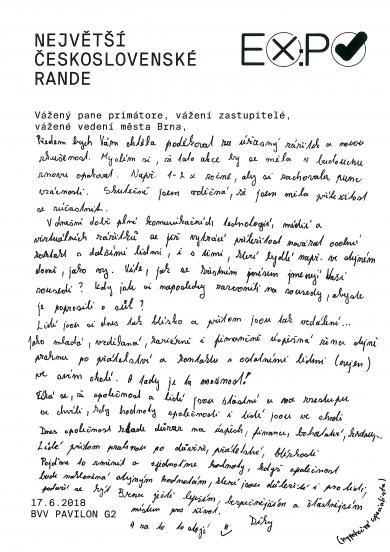 NEJVĚTŠÍ
ČESKOSLOVENSKÉ
RANDE
EX:PO
Vážený pane primátore, vážení zastupitelé,
vážené vedení města Brna,
Předem bych Vám chtěla poděkovat za úžasný zážitek a novou
zkušenost. Myslím si, že tato akce by se měla v budoucnu
znovu opakovat. Např. 1-2 x ročně, aby si zachovala punc
vzácnosti. Skutečně jsem vděčná, že jsem měla příležitost
se zúčastnit.
V dnešní době plné komunikačních technologií, médií a
virtuálních zážitků se jen vytrácí příležitost navázat osobní
kontakt s dalšími lidmi, i s těmi, kteří bydlí např. ve stejném
domě, jako my. Víte, jak se křestním jménem jmenují Vaši
sousedi? Kdy jste si naposledy zazvonili na sousedy, abyste
je poprosili o sůl?
Lidé jsou si dnes tak blízko a přitom jsou tak vzdálení...
Jako mladá, vzdělaná, kariérně i finančně úspěšná žena stejně
prahnu po přátelství a kontaktu s ostatními lidmi (nejen)
ve svém okolí. A tady je ta možnost!
Říká se, že společnost a lidé jsou šťastní a
ve chvíli, kdy hodnoty společnosti i lidé jsou ve shodě
Dnes společnost klade důraz na úspěch, finance, bohatství,
Lidé přitom prahnou po důvěře, přátelství, blízkosti
Pojďme to změnit a sjednoťme hodnoty, když společnost
bude nakloněná stejným hodnotám, které jsou důležité i pro lidi,
podaří se být Brnu ještě lepším, bezpečnějším a šťastnějším
místem pro život.
A na to to stojí! Díky
17.6.2018
BVV PAVILON G2